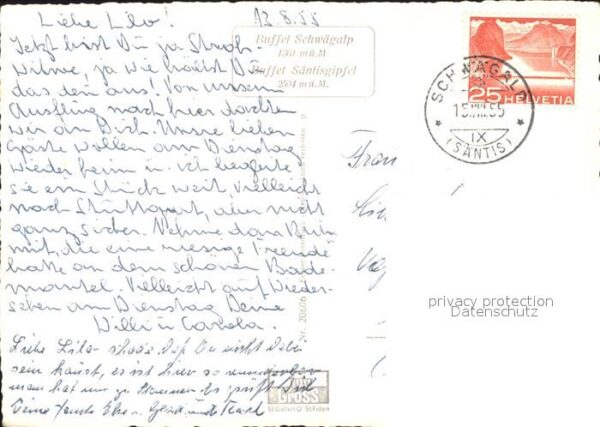 Liebe Lilo! 13.8.55
Jetzt bist Du ja Stroh-
witwe, ja wie hältst Du
das denn aus! Von unserem
Ausflug nach hier dachten
wir an Dich. Unsre lieben
Gäste wollen am Dienstag
wieder heim u. ich begleite
sie ein Stück weit vielleicht
nach Stuttgart, aber nicht
ganz sicher. Nehme dann
mit, die eine riesige Freude
hatte an dem schönen Bade-
mantel. Vielleicht auf Wieder-
sehen am Dienstag Deine
Willi u. Carola.
Liebe Lilo schade daß Du nicht dabei
sein kannst, es ist hier so wunderbar
man hat nur zu Es grüßt Dich
Deine Tante u. Karl
Buffet Schwägalp
1361 m ü.M
Buffet Säntisgipfel
2504 m ü.M.
25 HELVETIA
SCHWÄGALP
15.VIII.55
IX
(SÄNTIS)
Frau
privacy protection
Datenschutz
Nr. 20606
Foto
GROSS
St Gallen O - St Fiden